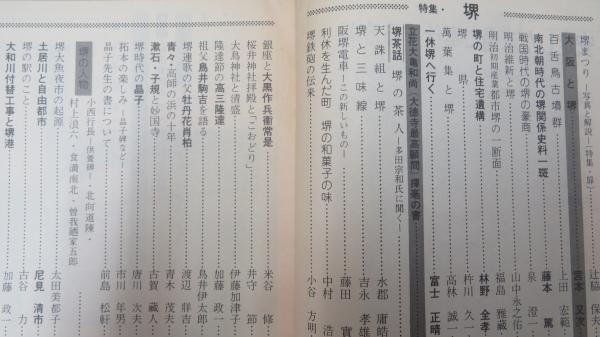 特集・堺
堺まつり―写真と解説―(特集・扉)……辻脇 保夫
大阪と堺……宮本 又次
百舌鳥古墳群……上田 宏範
南北朝時代の堺関係史料一斑……藤本 篤
戦国時代の堺の豪商……泉 澄一
明治維新と堺……山中 永之佑
明治初期産業都市堺の一断面……福島 雅蔵
堺の町と住宅遺構……林野 全孝
堺県……杵川 久一
萬葉集と堺……高林 誠一
一休堺へ行く……富士 正晴
立花大亀和尚(大徳寺最高顧問)揮毫の書
堺茶話 堺の茶人―多田宗和氏に聞く―
天誅組と堺……水郡 庸皓
堺と三味線……吉永 孝雄
阪堺電車―この新しいもの―……藤田 實
利休を生んだ町 堺の和菓子の味……中村 浩
堺鉄砲の伝来……小谷 方明
銀座と大黒作兵衛常是……米谷 修
桜井神社拝殿と「こおどり」……井守 節
大鳥神社と清盛……伊藤 加津子
隆達節の高三隆達……加藤 政一
祖父鳥井駒吉を語る……鳥井 伊太郎
堺連歌の父牡丹花肖柏……渡辺 鲜吉
青々・高師の浜の十年……青木 茂夫
漱石・子規と妙国寺……古賀 蔵人
堺時代の晶子……唐川 次夫
拓本の楽しみ―晶子碑など―……市川 年男
晶子先生の書について……前島 松軒
堺の人物
小西行長 供養碑―・北向道陳・
村上浪六・食満南北・曽我廼家五郎
堺大魚夜市の起源……太田 美都子
土居川と自由都市……尼見 清市
堺の駅のこと……古谷 力
大和川付替工事と堺港……加藤 政一